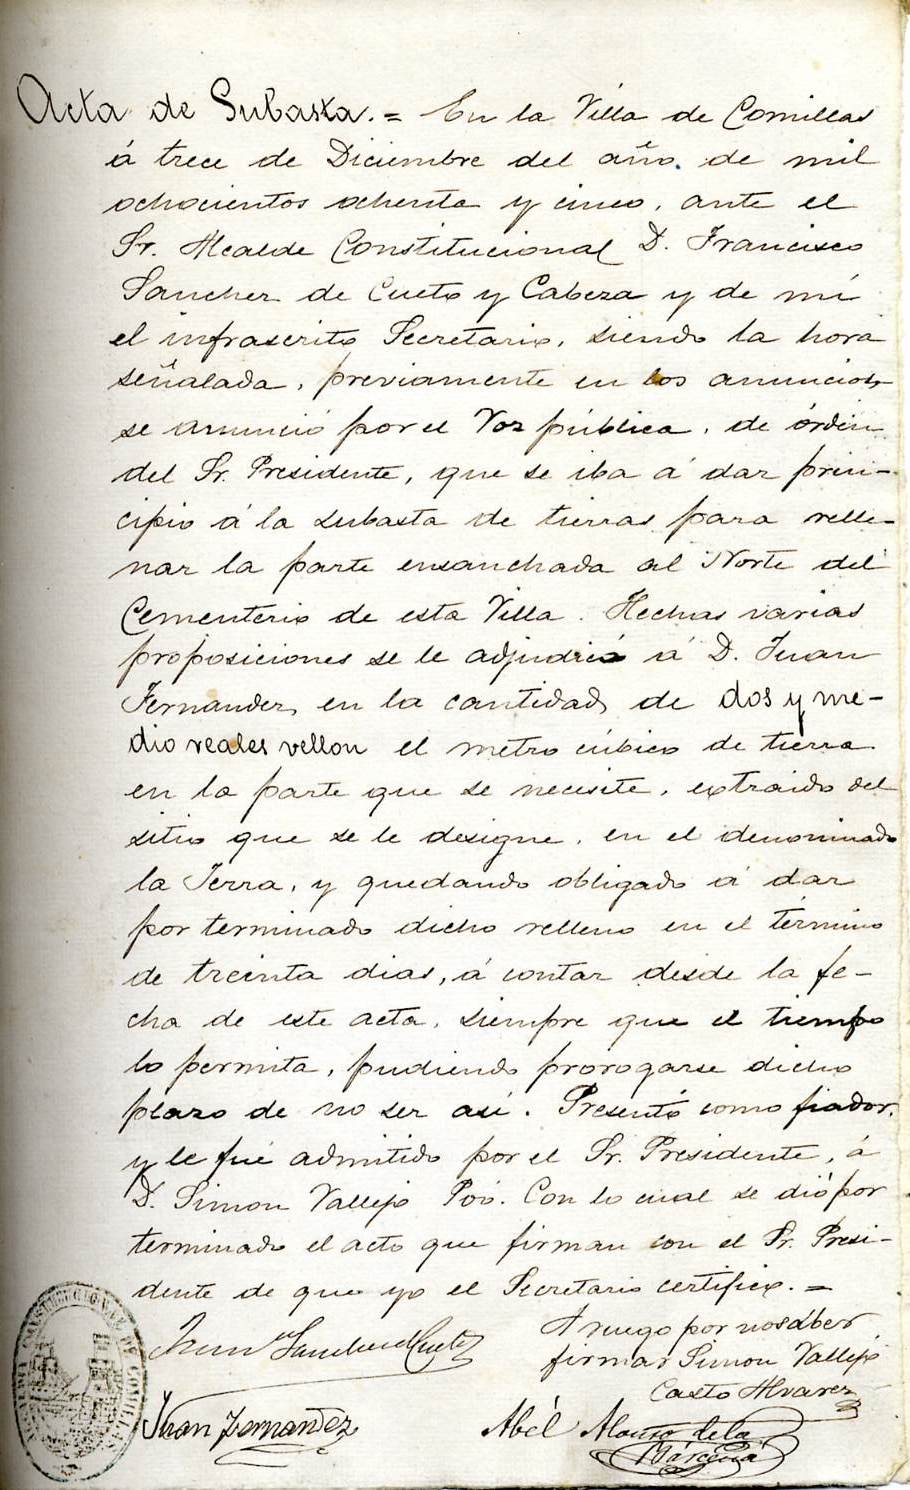 Acta de Subasta.= En la Villa de Comillas
á trece de Diciembre del año. de mil
ochocientos ochenta y cinco, ante el
Sr. Alcalde Constitucional D. Francisco
Sanchez de Cueto y Cabeza y de mí
el infrascrito Secretario, siendo la hora
señalada, previamente en los anuncios,
se anunció por el Voz pública, de órden
del Sr. Presidente, que se iba á dar prin-
cipio á la subasta de tierras para relle-
nar la parte ensanchada al Norte del
Cementerio de esta Villa. Hechas varias
proposiciones se le adjudicó á D. Juan
Fernandez, en la cantidad de dos y me-
dio reales vellon el metro cúbico de tierra
en la parte que se necesite, extraido del
sitio que se le designe, en el denominado
la Terra, y quedando obligado á dar
por terminado dicho relleno en el término
de treinta dias, á contar desde la fe-
cha de este acta, siempre que el tiempo
lo permita, pudiendo prorogarse dicho
plazo de no ser así. Presentó como fiador,
y le fué admitido por el Sr. Presidente, á
D. Simon Vallejo Poó. Con lo cual se dió por
terminado el acto que firman con el Sr. Presi-
dente de que yo el Secretario certifico.=
Sanchez de Cueto
A ruego por no saber
firmar Simon Vallejo
Casto Alvarez
Juan Fernandez
Abél Alonso de la
Bárcena
ALCALDIA CONSTITUCIONAL DE COMILLAS